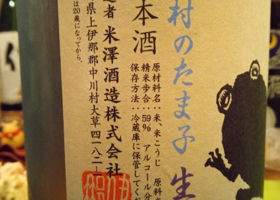 村のたま子 生
本酒
原材料名:米、米こうじ 原料
精米歩合:59% アルコール分
保存方法:冷蔵庫に保管してく
者 米澤酒造株式会社
県上伊那郡中川村大草四一八二
は20歳になってから。